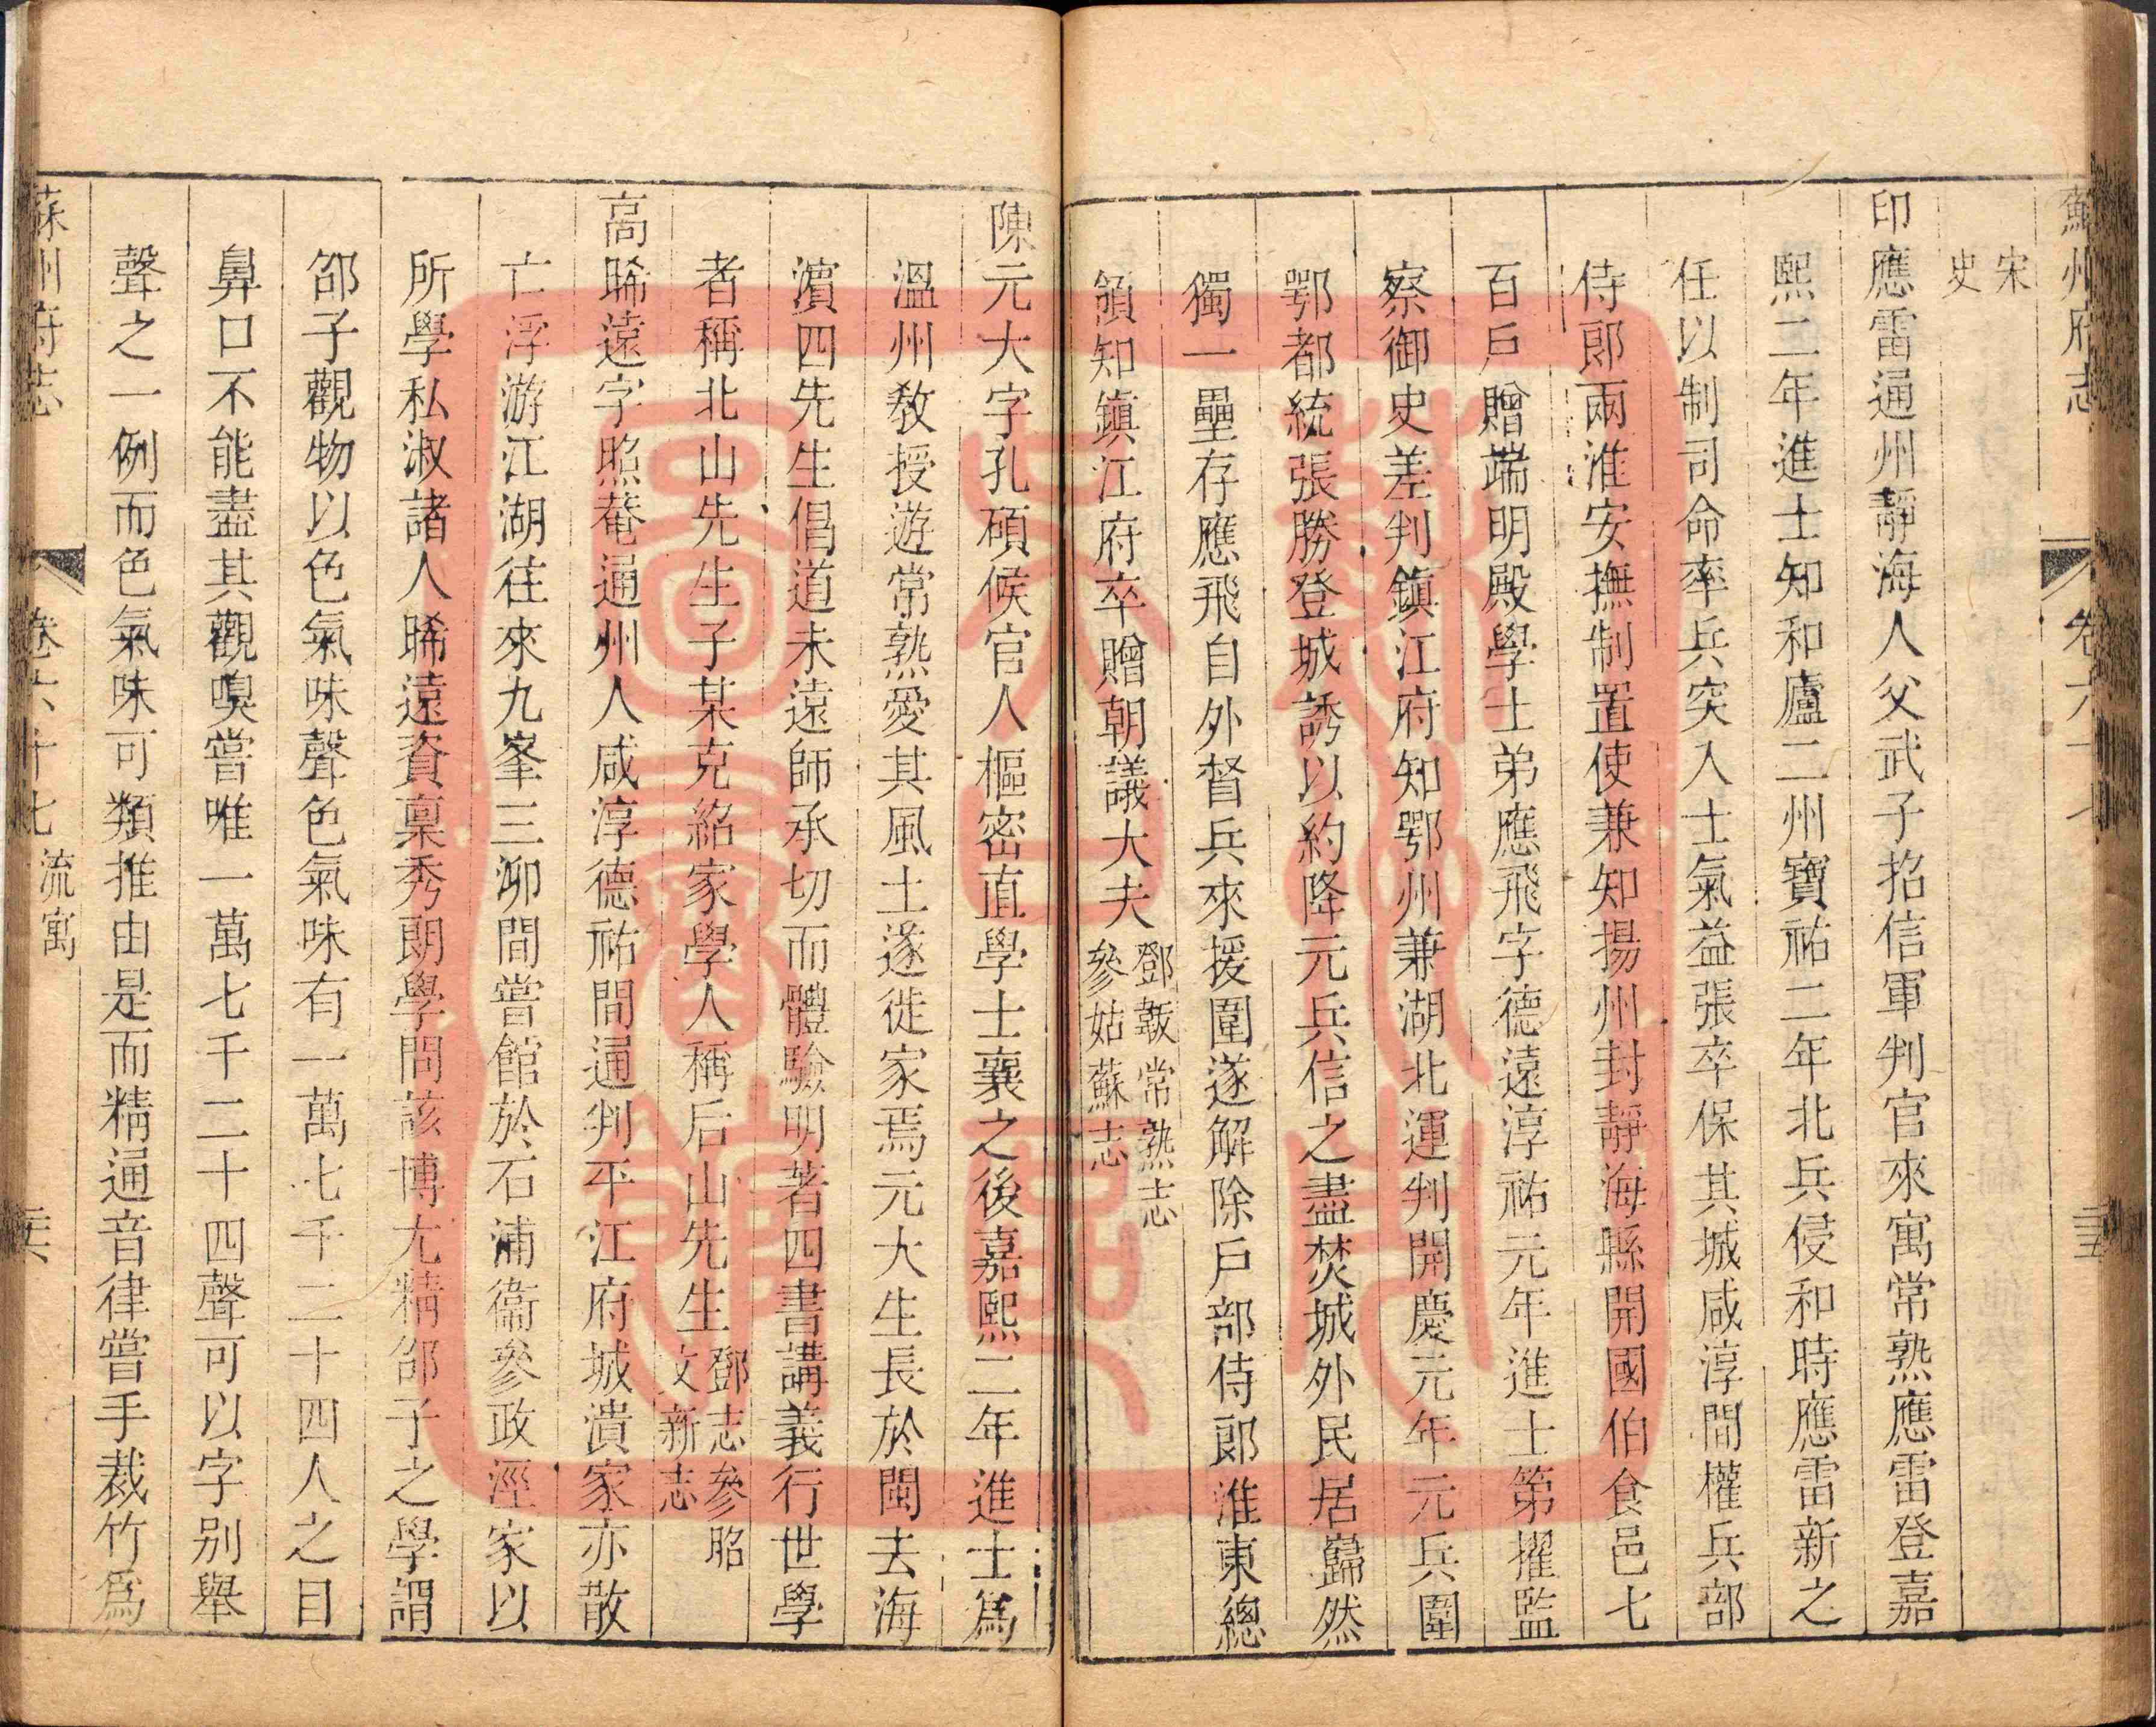 蘇州府志 卷六十七
宋史
印應雷通州靜海人父武子招信軍判官來寓常熟應雷登嘉
熙二年進士知和廬二州寶祐二年北兵侵和時應雷新之
任以制司命率兵突入士氣益張卒保其城咸淳間權兵部
侍郎兩淮安撫制置使兼知揚州封靜海縣開國伯食邑七
百戶贈端明殿學士弟應飛字德遠淳祐元年進士第擢監
察御史差判鎮江府知鄂州兼湖北運判開慶元年元兵圍
鄂都統張勝登城誘以約降元兵信之盡焚城外民居巋然
獨一壘存應飛自外督兵來援圍遂解除戶部侍郎淮東總
領知鎮江府卒贈朝議大夫鄧韍常熟志參姑蘇志
陳元大字孔碩候官人樞密直學士襄之後嘉熙二年進士爲
溫州敎授遊常熟愛其風土遂徙家焉元大生長於閩去海
濵四先生倡道未遠師承切而體驗明著四書講義行世學
者稱北山先生子某克紹家學人稱后山先生鄧志參昭文新志
高晞遠字照菴通州人咸淳德祐間通判平江府城潰家亦散
亡浮游江湖往來九峯三泖間嘗館於石浦衞參政涇家以
所學私淑諸人晞遠資稟秀朗學問該博尤精邵子之學謂
邵子觀物以色氣味聲色氣味有一萬七千二十四人之目
鼻口不能盡其觀嗅嘗唯一萬七千二十四聲可以字别舉
聲之一例而色氣味可類推由是而精通音律嘗手裁竹爲
蘇州府志 卷六十七 流寓